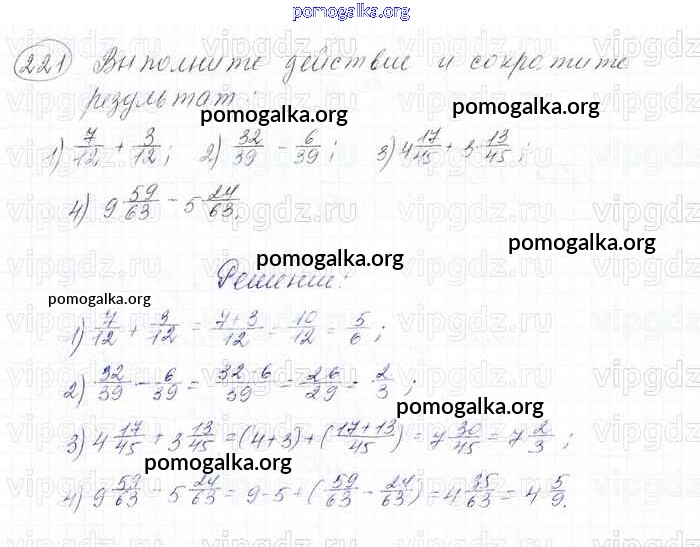 pomogalka.org
221 Выполните действие и сократите
результат:
pomogalka.org pomogalka.org
1) 7/12 + 3/12; 2) 32/39 - 6/39; 3) 4 17/45 + 3 13/45;
4) 9 59/63 - 5 24/63.
pomogalka.org
Решение:
pomogalka.org
pomogalka.org
1) 7/12 + 3/12 = 7+3/12 = 10/12 = 5/6;
2) 32/39 - 6/39 = 32-6/39 = 26/29 = 2/3;
pomogalka.org
3) 4 17/45 + 3 13/45 = (4+3) + (17+13/45) = 7 30/45 = 7 2/3;
pomogalka.org
4) 9 59/63 - 5 24/63 = 9-5 + (59/63 - 24/63) = 4 35/63 = 4 5/9.